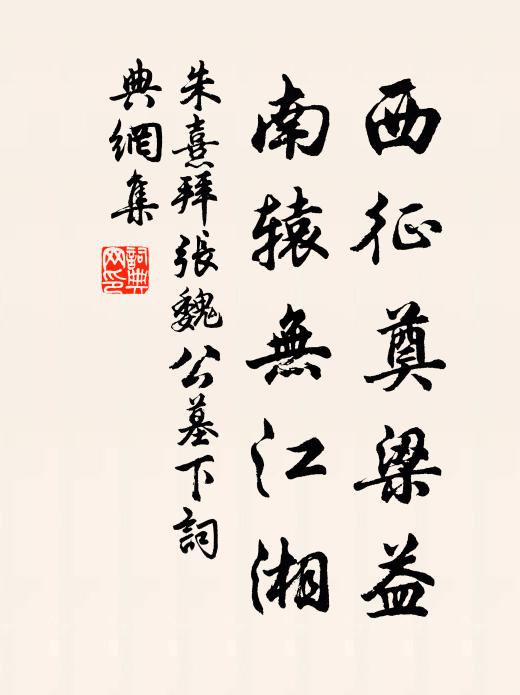 西征奠梁益
南辕無江湘
朱熹拜張魏公墓下詞
典網集
詞典網印